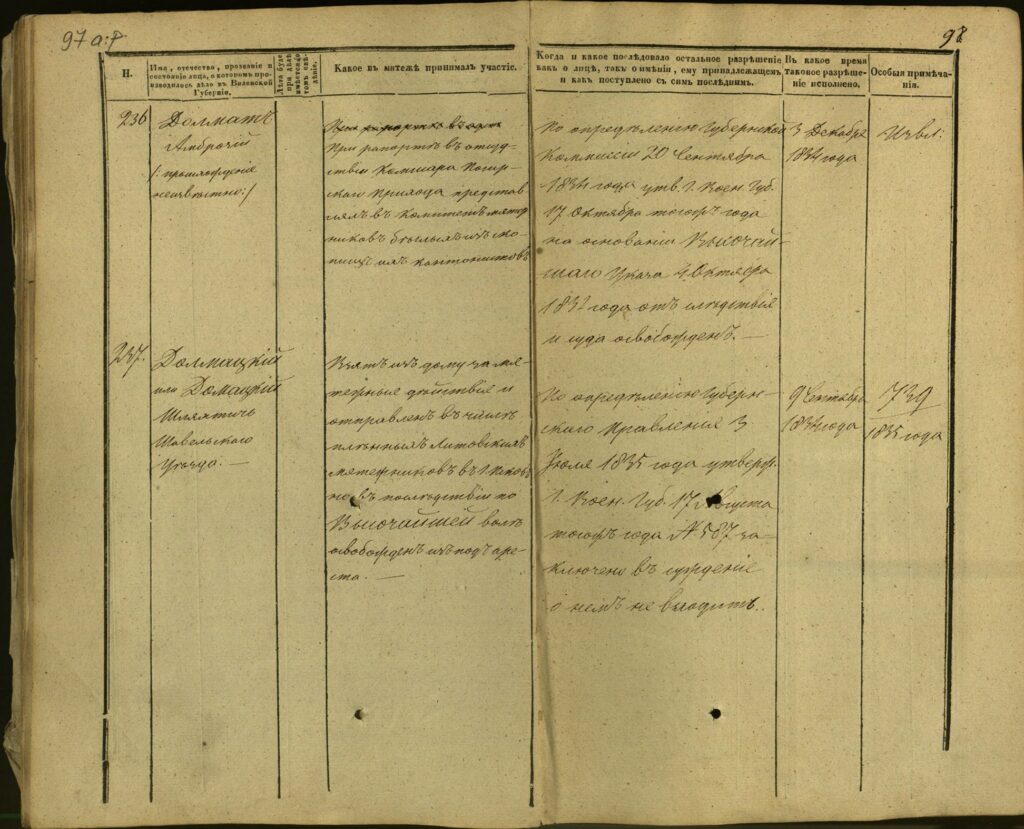 97 а:р
98
Н.
Имя, отечество, прозваніе и
состояніе лица, о которомъ про-
изводилось дѣло въ Виленской
Губерніи.
Какое въ мятежѣ принималъ участіе.
Когда и какое послѣдовало остальное разрѣшеніе
какъ о лицѣ, такъ о имѣніи, ему принадлежащемъ
и какъ поступлено съ симъ послѣднимъ.
Въ какое время
таковое разрѣше-
ніе исполнено.
Особыя примѣча-
нія.
236
Долматъ
Амброжій
/: происхожденіе
неизвѣстно :/
При рапортѣ въ отсуд-
ствіи
скаго Прихода представ-
лялъ въ Комитетъ мятеж
никовъ бывшихъ изъ
кантонистовъ
По опредѣленію Губернской
Коммисіи 20 Сентября
1834 года утв. Г. Воен. Губ.
17 Октября тогожъ года
на основаніи Высочай-
шаго Указа 4 Октября
1832 года отъ слѣдствія
и суда освобожденъ. —
3 Декабря
1834 года
237.
Долмацкій
или Домацкій
Шляхтичъ
Шавельскаго
Уѣзда. —
Взятъ изъ дому за мя-
тежные дѣйствіе и
отправленъ въ числѣ
плѣнныхъ Литовскихъ
мятежниковъ въ Г.
но въ послѣдствіи по
Высочайшей волѣ
освобожденъ изъ подъ аре-
ста. —
По опредѣленію Губерн-
скаго Правленія 3
Іюля 1835 года утверж.
Г. Воен. Губ. 17 Августа
тогожъ года № 587 за-
ключено въ сужденіе
о немъ не входить.
9 Сентября
года
739
1835 года